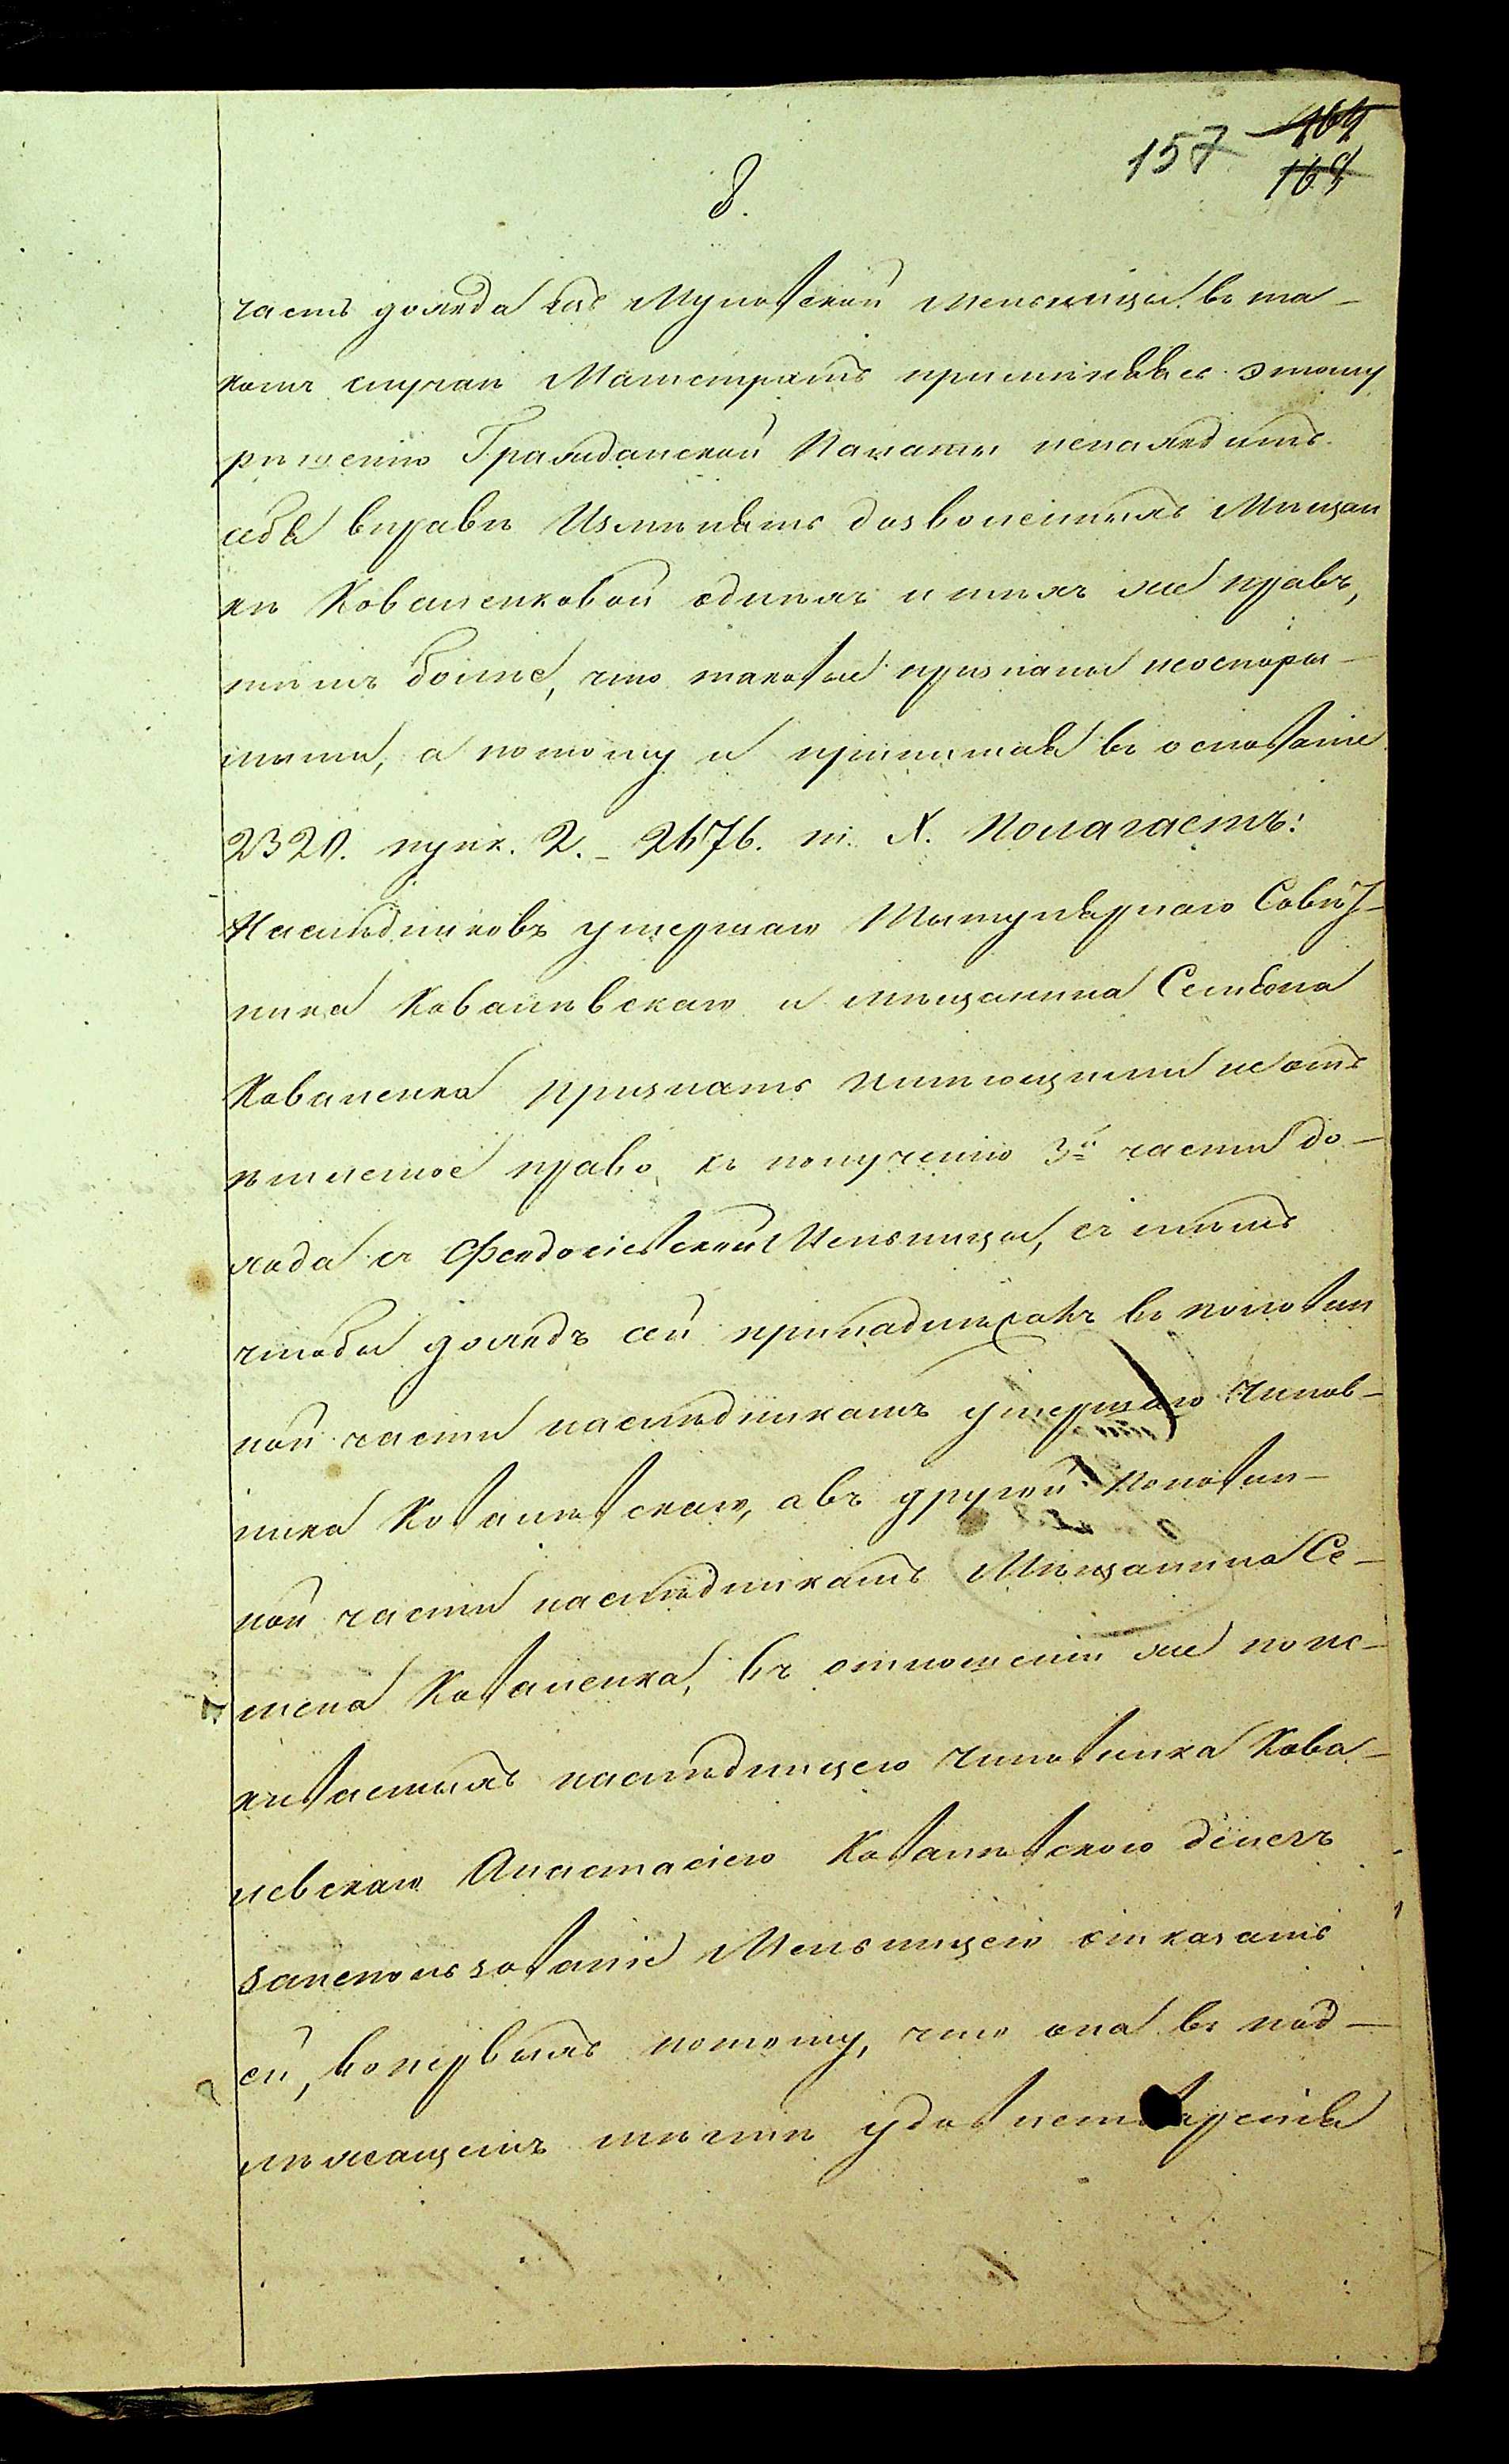 157 164
169
8.
часть дохода изъ Муновской мельницы въ та-
комъ случаѣ Магистратъ примѣняясь этому
рѣшенію Гражданской Палаты ненаходитъ
себя вправѣ Измѣнять дозволенныхъ Мѣщан
кѣ Коваленковой однихъ и тѣхъ же правъ,
тѣмъ болѣе, что таковые признаны неоспори-
мыми, а потому и принимая въ основаніе
2320. пунк. 2. - 2476. т. X. Полагаетъ:
Наслѣдниковъ умершаго Титулярнаго Совѣт-
ника Ковалѣвскаго и мѣщанина Семена
Коваленка признать имѣющими неотъ
ѣмлемое право къ полученію 3й части до-
хода съ Феодосіевской Мельницы, съ тѣмъ
чтобы доходъ сей принадлежалъ въ половин
ной части наслѣдникамъ умершаго Чинов-
ника Ковалѣвскаго, а въ другой Половин-
ной части наслѣдникамъ Мѣщанина Се-
мена Коваленка, въ отношеніи же поис-
киваемыхъ наслѣдницею Чиновника Кова-
левскаго Анастасіею Ковалѣвскою денегъ
запользованіе Мельницею отказать
ей, вопервыхъ потому, что она въ над-
лежащемъ мѣстѣ удовлетворенія